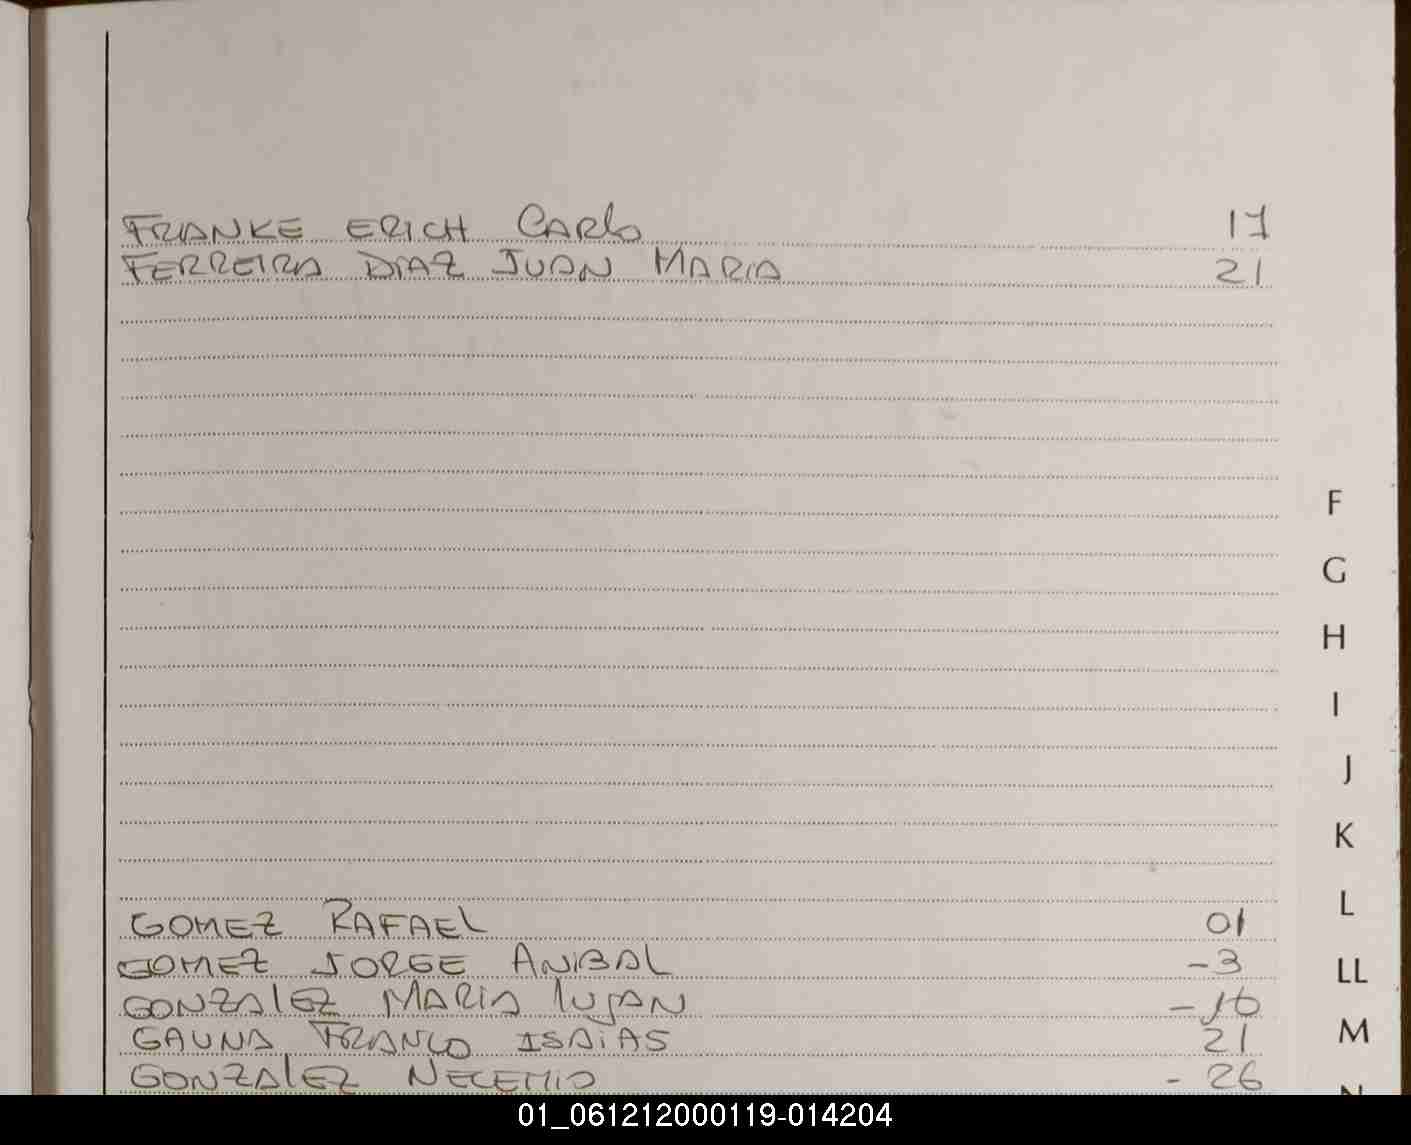 FRANKE ERICH CARlo 17
FERREIRA DIAZ JUAN MARIA 21
F
G
H
I
J
K
L
GOMEZ RAFAEL 01
GOMEZ JORGE ANIBAL -3
LL
GONZALEZ MARIA lUJAN -16
GAUNA FRANCO ISAiAS 21
M
GONZALEZ NECEMIO - 26
N
01_061212000119-014204